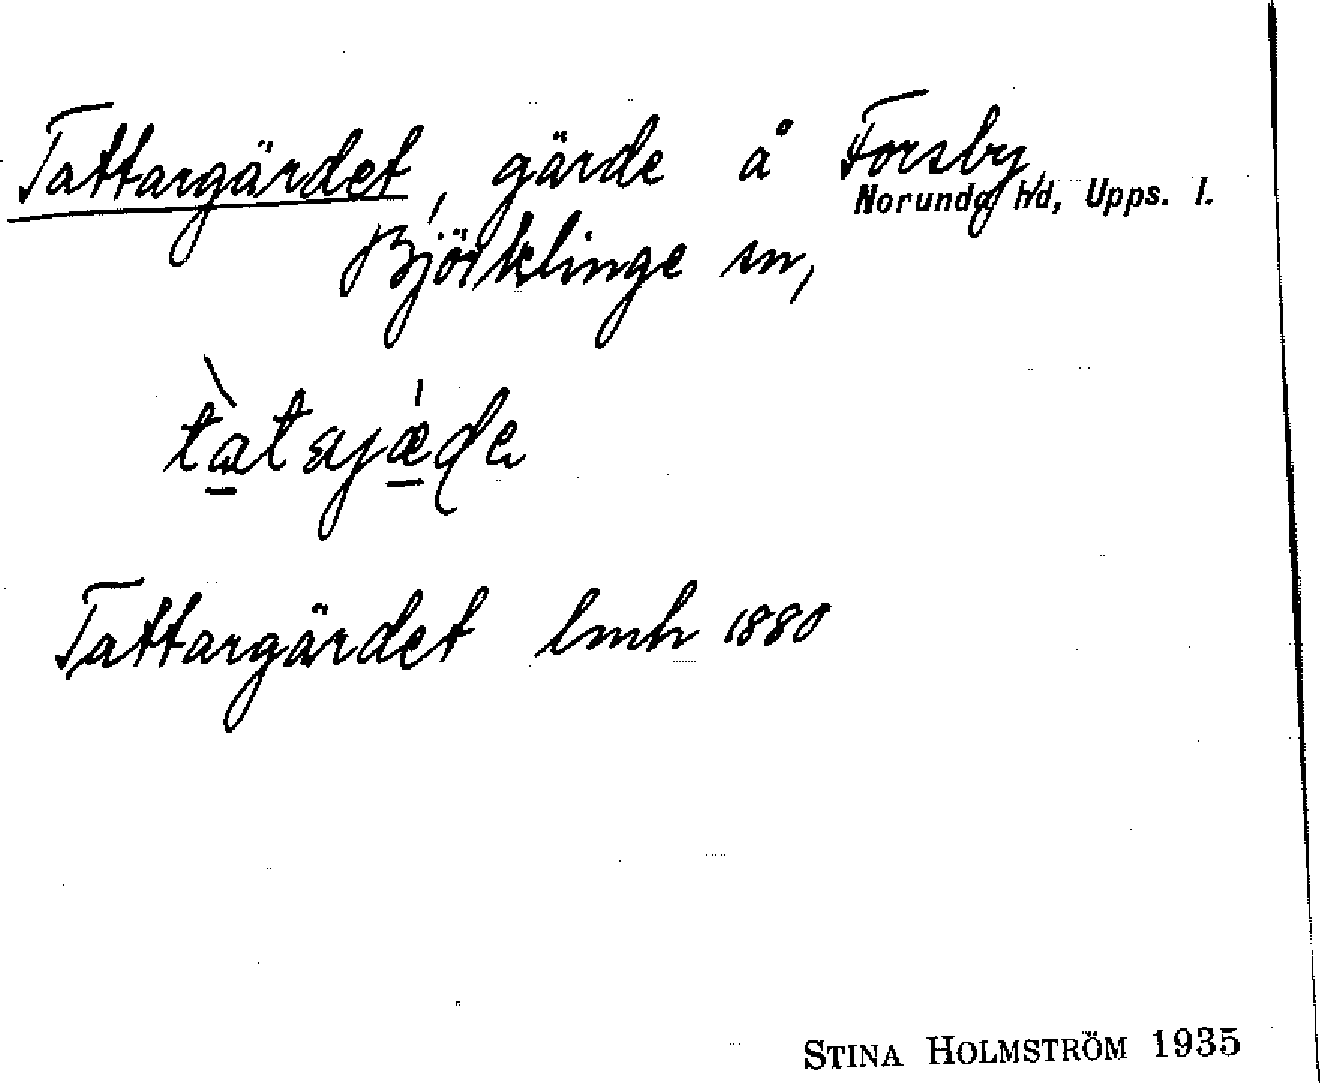 Tattargärdet, gärde å Forsby,
Norunda hd, Upps. l.
Björklinge sn,
Tattargärdet lmh 1880
STINA HOLMSTRÖM 1935